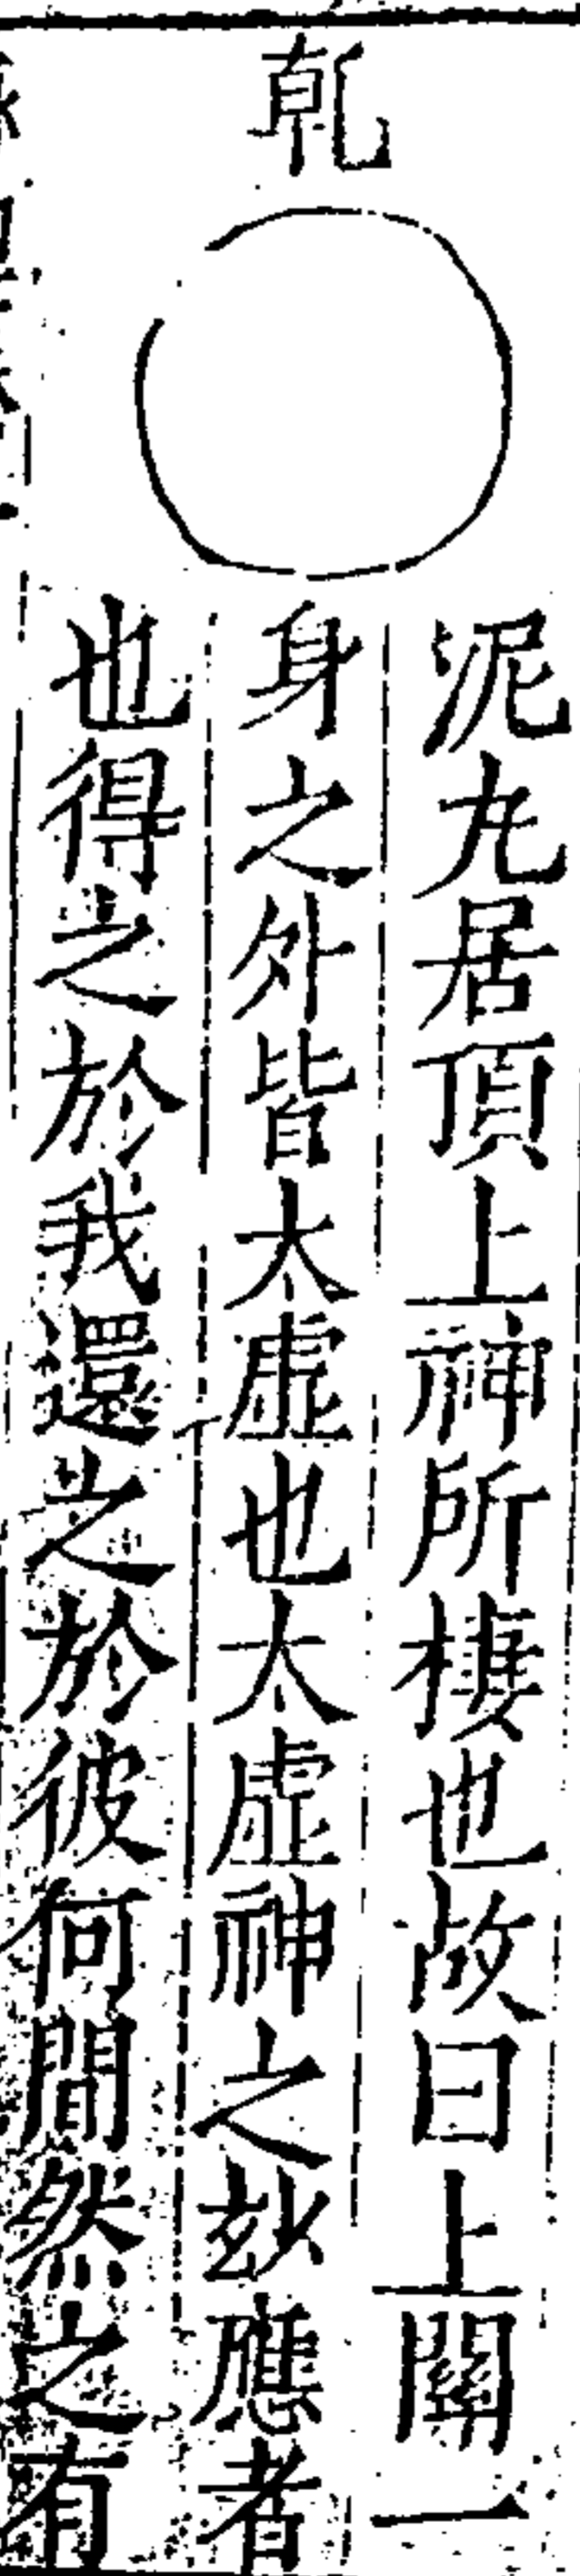 乹
泥丸居頂上神所棲也故曰上關一
身之外皆太虛也太虛神之玅應者
也得之於我還之於彼何間然之有